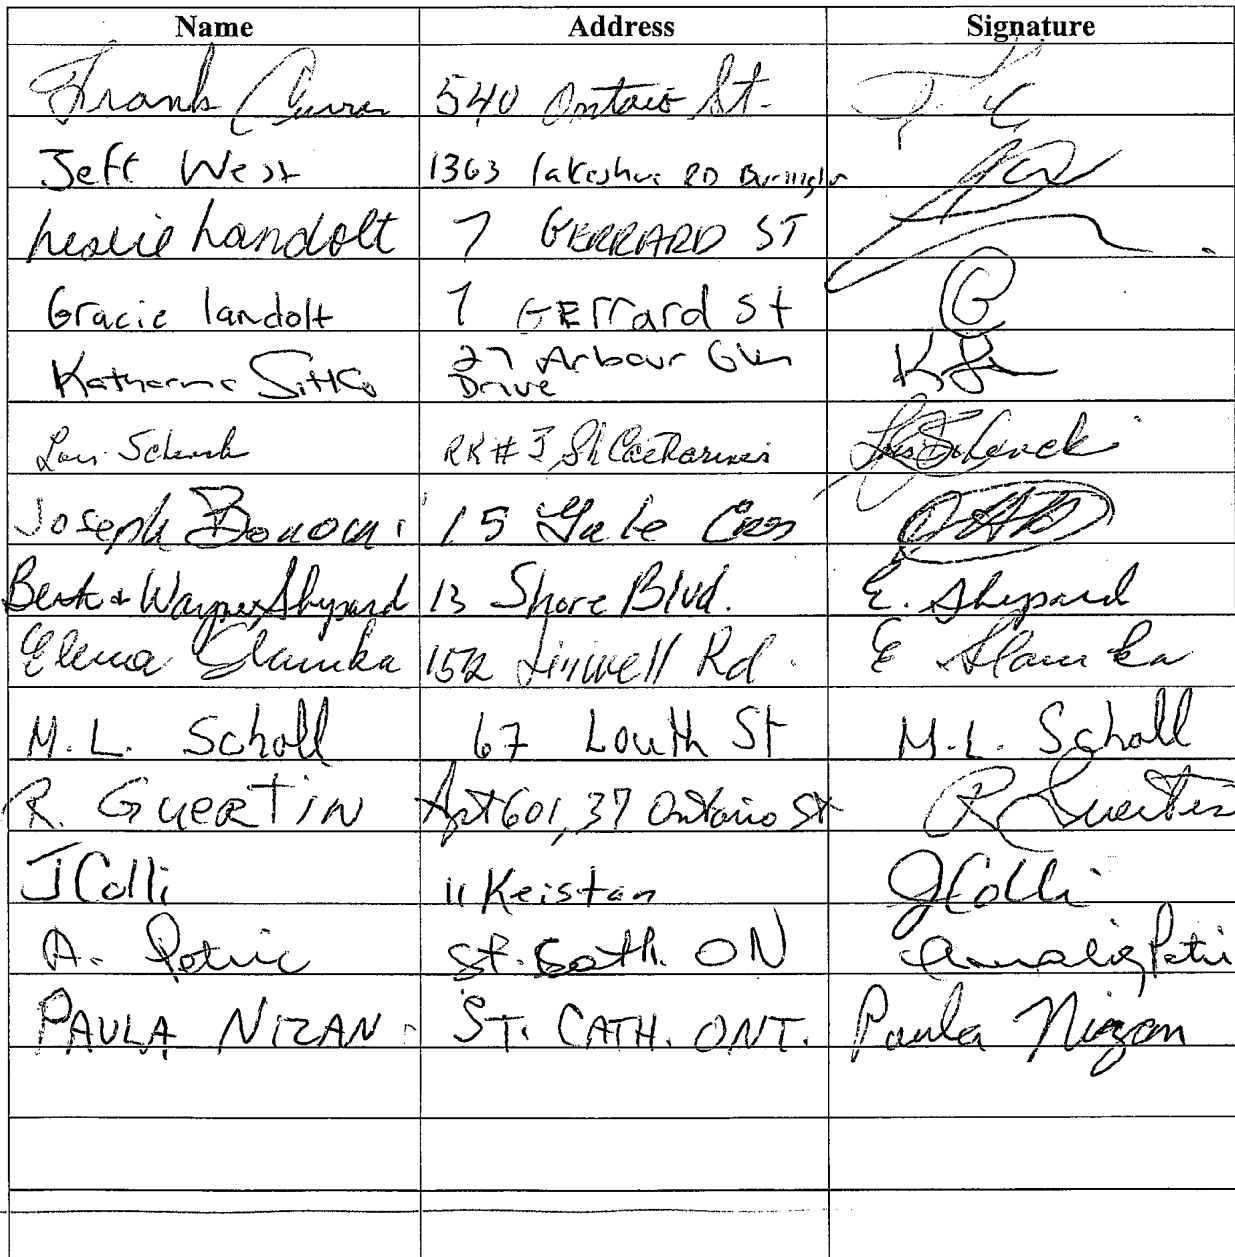 Name Address Signature
Frank Curran 540 Ontario St.
Jeff West 1363 Lakeshore RD Burlington
Leslie Landolt 7 GERRARD ST
Gracie landolt 7 GErrard St
Katharine Sitko 27 Arbour Glen
Drive
Lois Schenck RR # 3 St Catharines Lois Schenck
Joseph 15 Yale Cres
Wayne Shepard 13 Shore Blvd. E. Shepard
Elena Slamka 152 Linwell Rd. E Slamka
M. L. Scholl 67 Louth St M. L. Scholl
R. GUERTIN Apt 601, 37 Ontario St R Guertin
J Colli 11 Keistan J Colli
A. Petric St. Cath. ON Petric
PAULA NIZAN ST. CATH. ONT. Paula Nizan